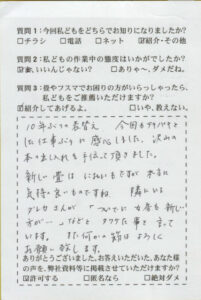 質問1:今回私どもをどちらでお知りになりましたか?
□チラシ □電話 □ネット ☑紹介・その他
質問2:私どもの作業中の態度はいかがでしたか?
☑まぁ、いいんじゃない? □ありゃ〜、ダメだね。
質問3:畳やフスマでお困りの方がいらっしゃったら、
私どもをご推薦いただけますか?
☑紹介してあげるよ。 □いや、教えない。
10年ぶりの表替え 今回も
仕事ぶりに感心しました。沢山の
本の出し入れを手伝って頂きました。
新しい畳はにおいもですが本当に
気持ち良いものですね 隣にいる
が「ついでに も新しい
方が…」などと な事を言って
います。また何かの節はよろしく
お願い致します。
ありがとうございました。お答えいただいた、あなた様
の声を、弊社資料等に掲載させていただけますか?
☑許可する □匿名なら □絶対ダメ